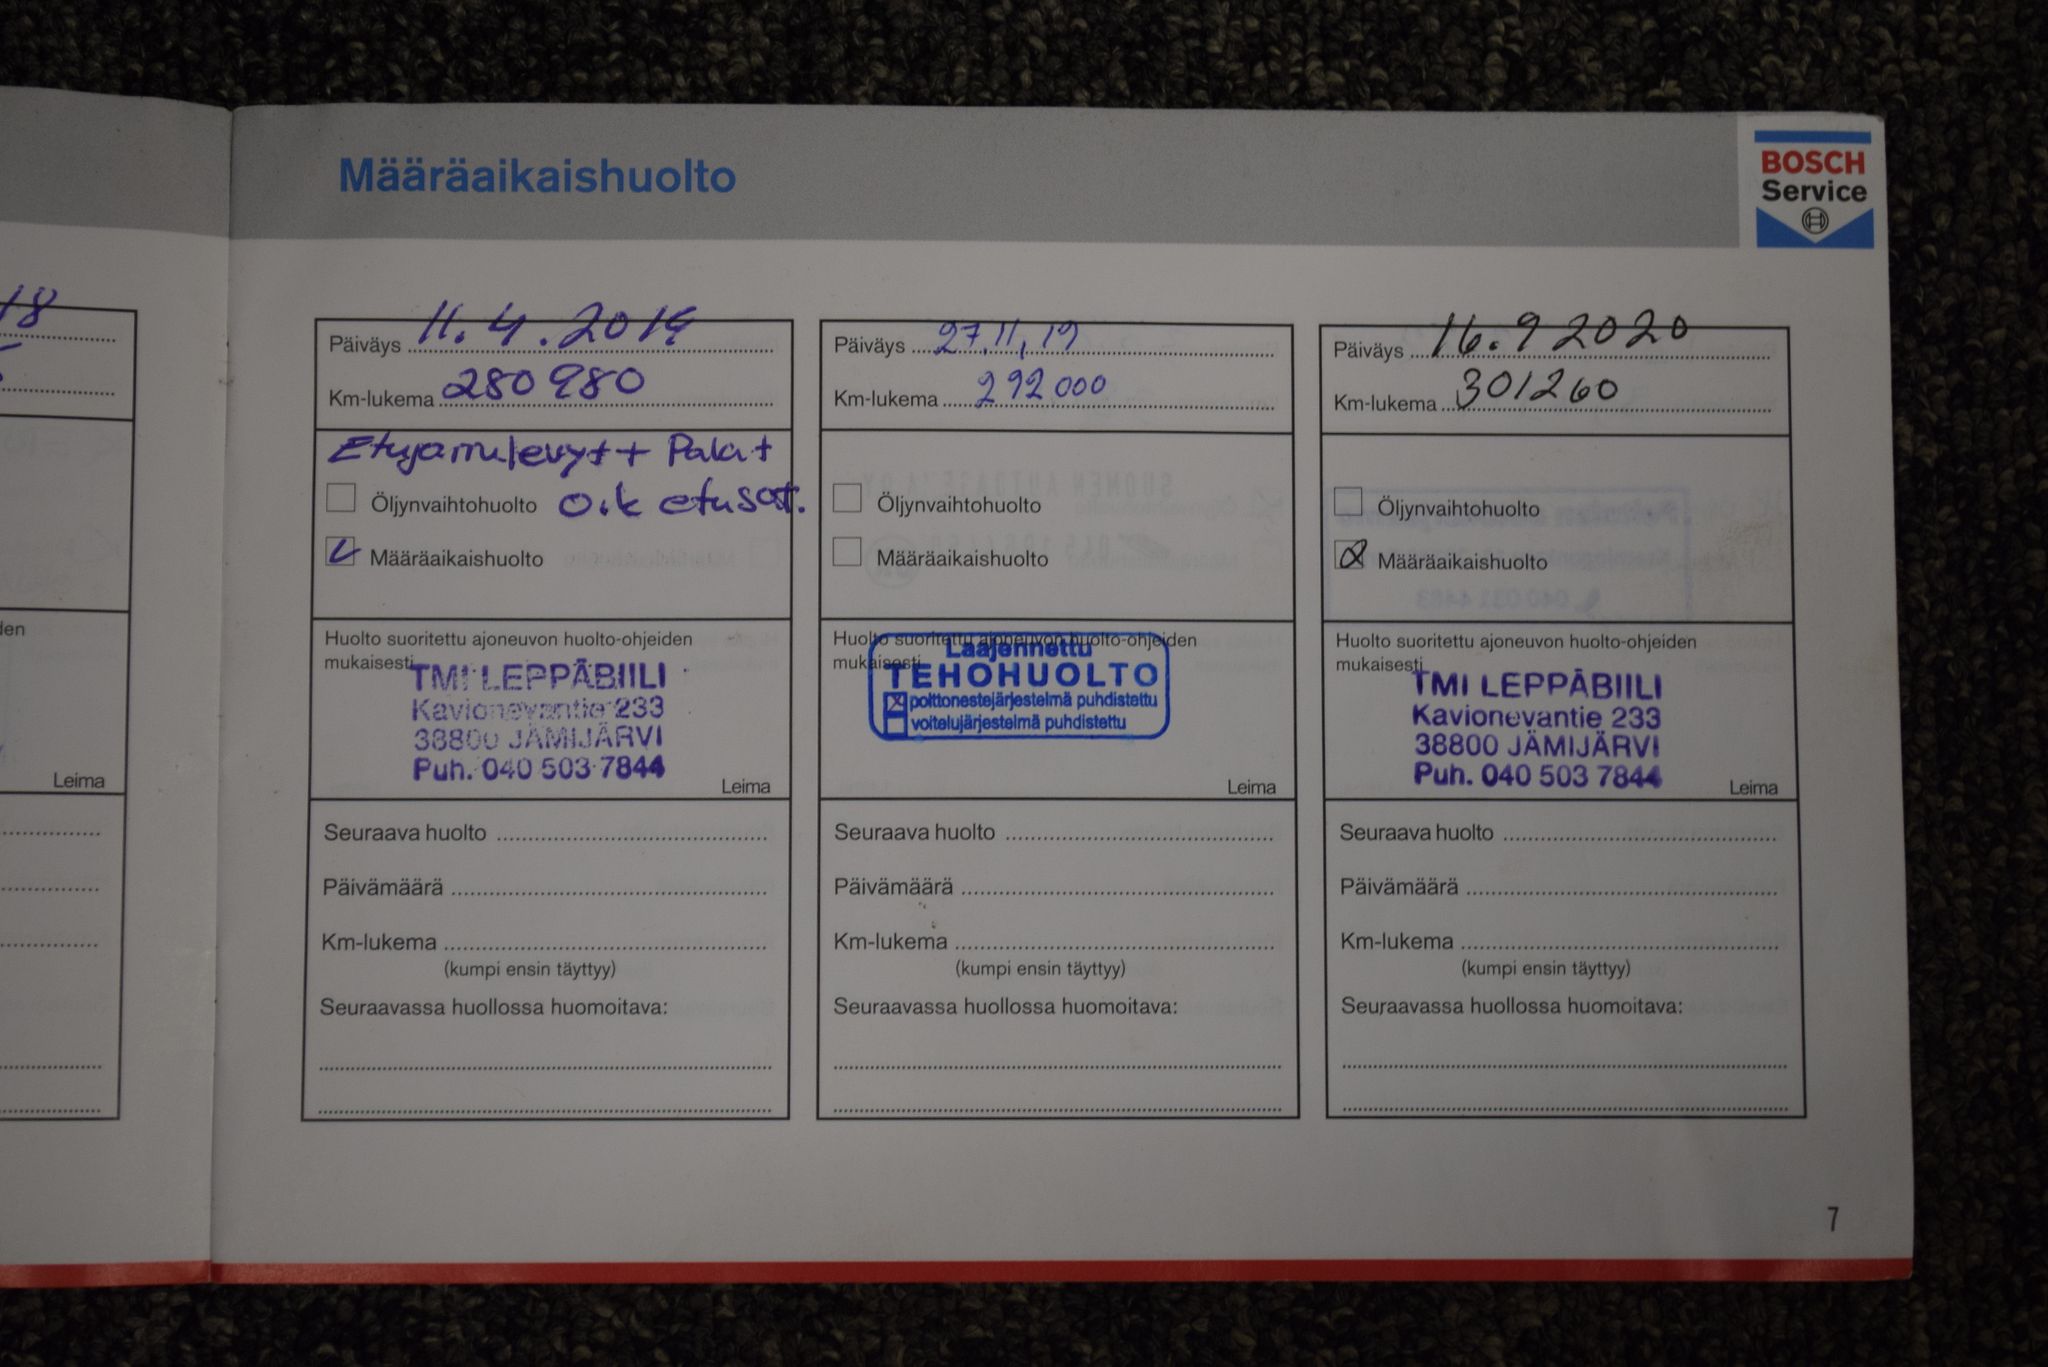 Määräaikaishuolto
BOSCH
Service
18
den
Leima
Päiväys 11.4.2019
Km-lukema 280980
Etujarrulevyt + Palat
Öljynvaihtohuolto o.k etusat.
Määräaikaishuolto
Huolto suoritettu ajoneuvon huolto-ohjeiden
mukaisesti
TMI LEPPÄBIILI
Kavionevantie 233
38800 JÄMIJÄRVI
Puh. 040 503 7844
Leima
Seuraava huolto
Päivämäärä
Km-lukema
(kumpi ensin täyttyy)
Seuraavassa huollossa huomoitava:
Päiväys 27.11.19
Km-lukema 292000
Öljynvaihtohuolto
Määräaikaishuolto
Huolto suoritettu ajoneuvon huolto-ohjeiden
mukaisesti
Laajennettu
TEHOHUOLTO
polttonestejärjestelmä puhdistettu
voitelujärjestelmä puhdistettu
Leima
Seuraava huolto
Päivämäärä
Km-lukema
(kumpi ensin täyttyy)
Seuraavassa huollossa huomoitava:
Päiväys 16.9 2020
Km-lukema 301260
Öljynvaihtohuolto
Määräaikaishuolto
Huolto suoritettu ajoneuvon huolto-ohjeiden
mukaisesti
TMI LEPPÄBIILI
Kavionevantie 233
38800 JÄMIJÄRVI
Puh. 040 503 7844
Leima
Seuraava huolto
Päivämäärä
Km-lukema
(kumpi ensin täyttyy)
Seuraavassa huollossa huomoitava:
7